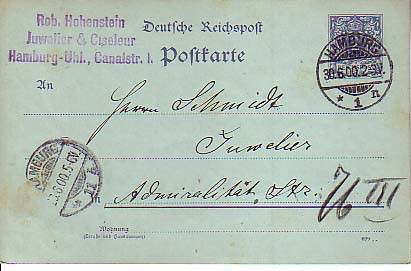 Rob. Hohenstein
Juwelier & Ciseleur
Hamburg-Uhl., Canalstr. 1.
Deutsche Reichspost
Postkarte
HAMBURG
30.6.00.2-3V.
* 1 n
An
Herrn Schmidt
Juwelier
HAMBURG
.6.00.5-6V.
Admiralität Str. 76 III
Wohnung
(Straße und Hausnummer)